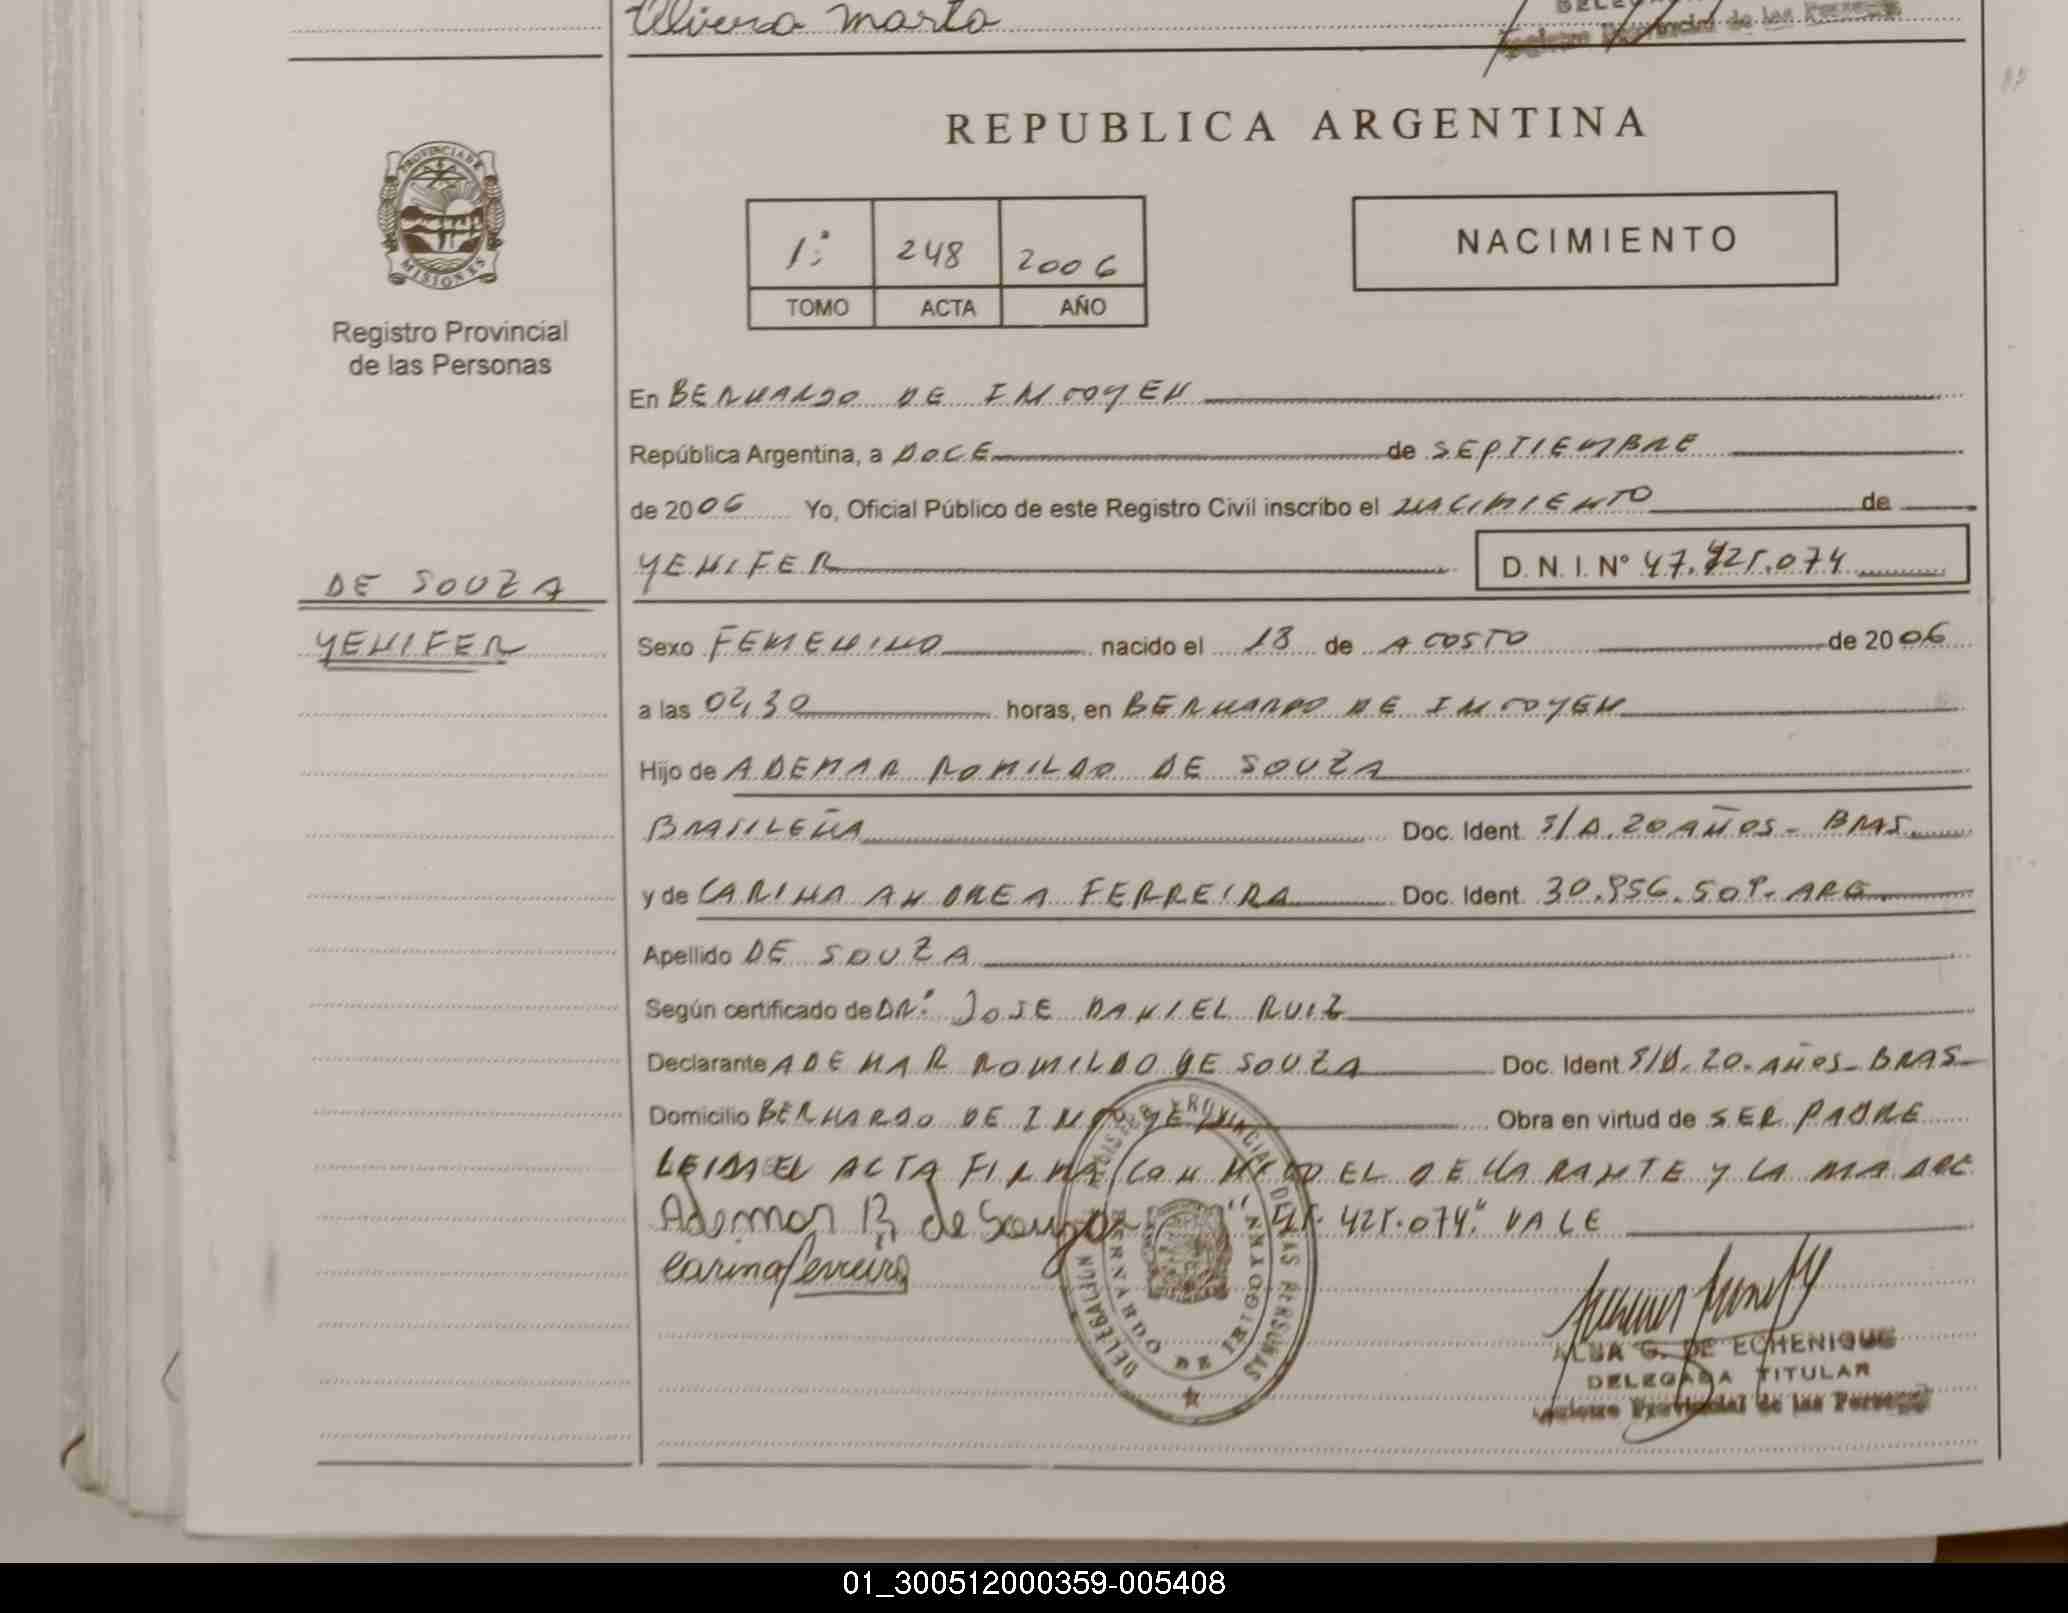 Olivera Marta
REPUBLICA ARGENTINA
PROVINCIA DE MISIONES
Registro Provincial
de las Personas
1º 248 2006
TOMO ACTA AÑO
NACIMIENTO
En BERNARDO DE IRIGOYEN
República Argentina, a DOCE de SEPTIEMBRE
de 2006 Yo, Oficial Público de este Registro Civil inscribo el NACIMIENTO de
YENIFER D. N. I. Nº 47.425.074
DE SOUZA
YENIFER
Sexo FEMENINO nacido el 18 de AGOSTO de 2006
a las 02,30 horas, en BERNARDO DE IRIGOYEN
Hijo de ADEMAR ROMILDO DE SOUZA
BRASILEÑA Doc. Ident. S/D. 20 AÑOS - BRAS
y de CARINA ANDREA FERREIRA Doc. Ident. 30.956.509- ARG
Apellido DE SOUZA
Según certificado de DR. JOSE DANIEL RUIZ
Declarante ADEMAR ROMILDO DE SOUZA Doc. Ident S/D. 20. AÑOS- BRAS-
Domicilio BERNARDO DE IRIGOYEN Obra en virtud de SER PADRE
LEIDA EL ACTA FIRMA CON MIGO EL DECLARANTE Y LA MADRE
Ademar R de Souza " 425.074." VALE
Carina Ferreira
REGISTRO PROVINCIAL DE LAS PERSONAS
DELEGACIÓN
BERNARDO DE IRIGOYEN
ALBA G. DE ECHENIQUE
DELEGADA TITULAR
Registro Provincial de las Personas
01_300512000359-005408